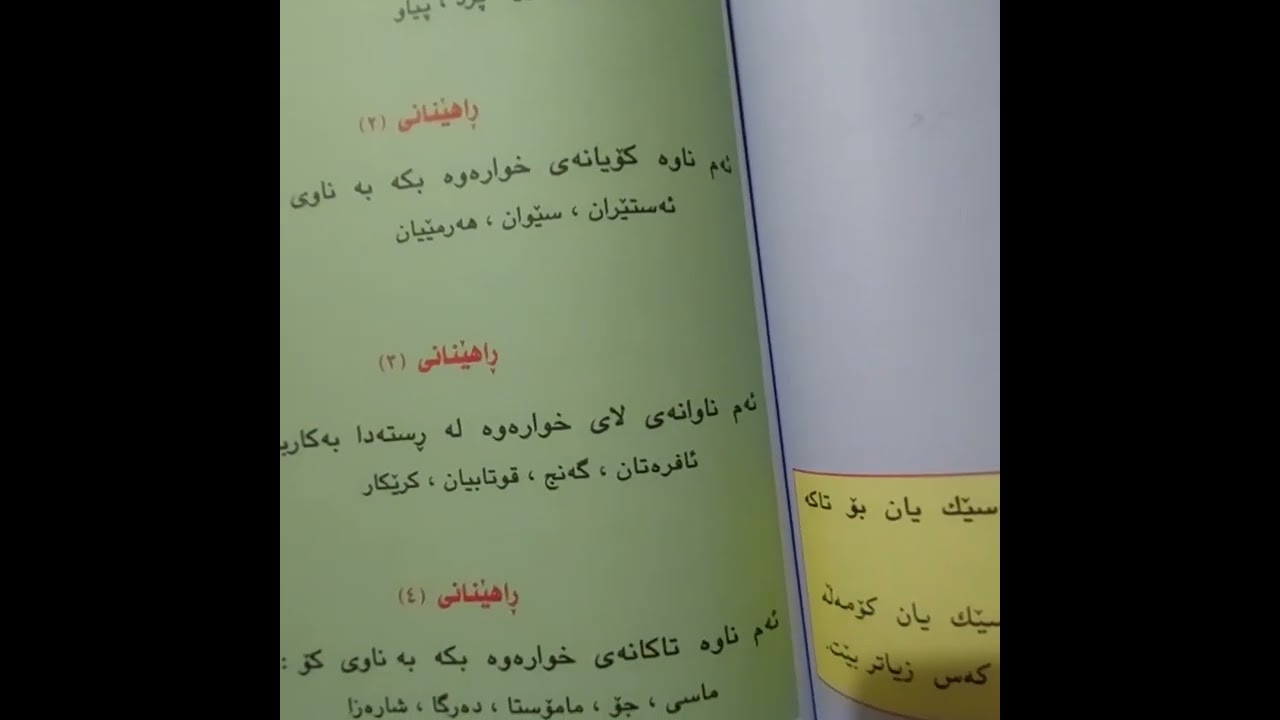 پرد ، پیاو
ڕاهێنانی (٢)
ئەم ناوە کۆیانەی خوارەوە بکە بە ناوی
ئەستێران ، سێوان ، هەرمێیان
ڕاهێنانی (٣)
ئەم ناوانەی لای خوارەوە لە ڕستەدا
ئافرەتان ، گەنج ، قوتابییان ، کرێکار
ڕاهێنانی (٤)
ئەم ناوە تاکانەی خوارەوە بکە بە ناوی کۆ :
ماسی ، جۆ ، مامۆستا ، دەرگا ، شارەزا
یان بۆ تاکە
یان کۆمەڵە
کەس زیاتر بێت.